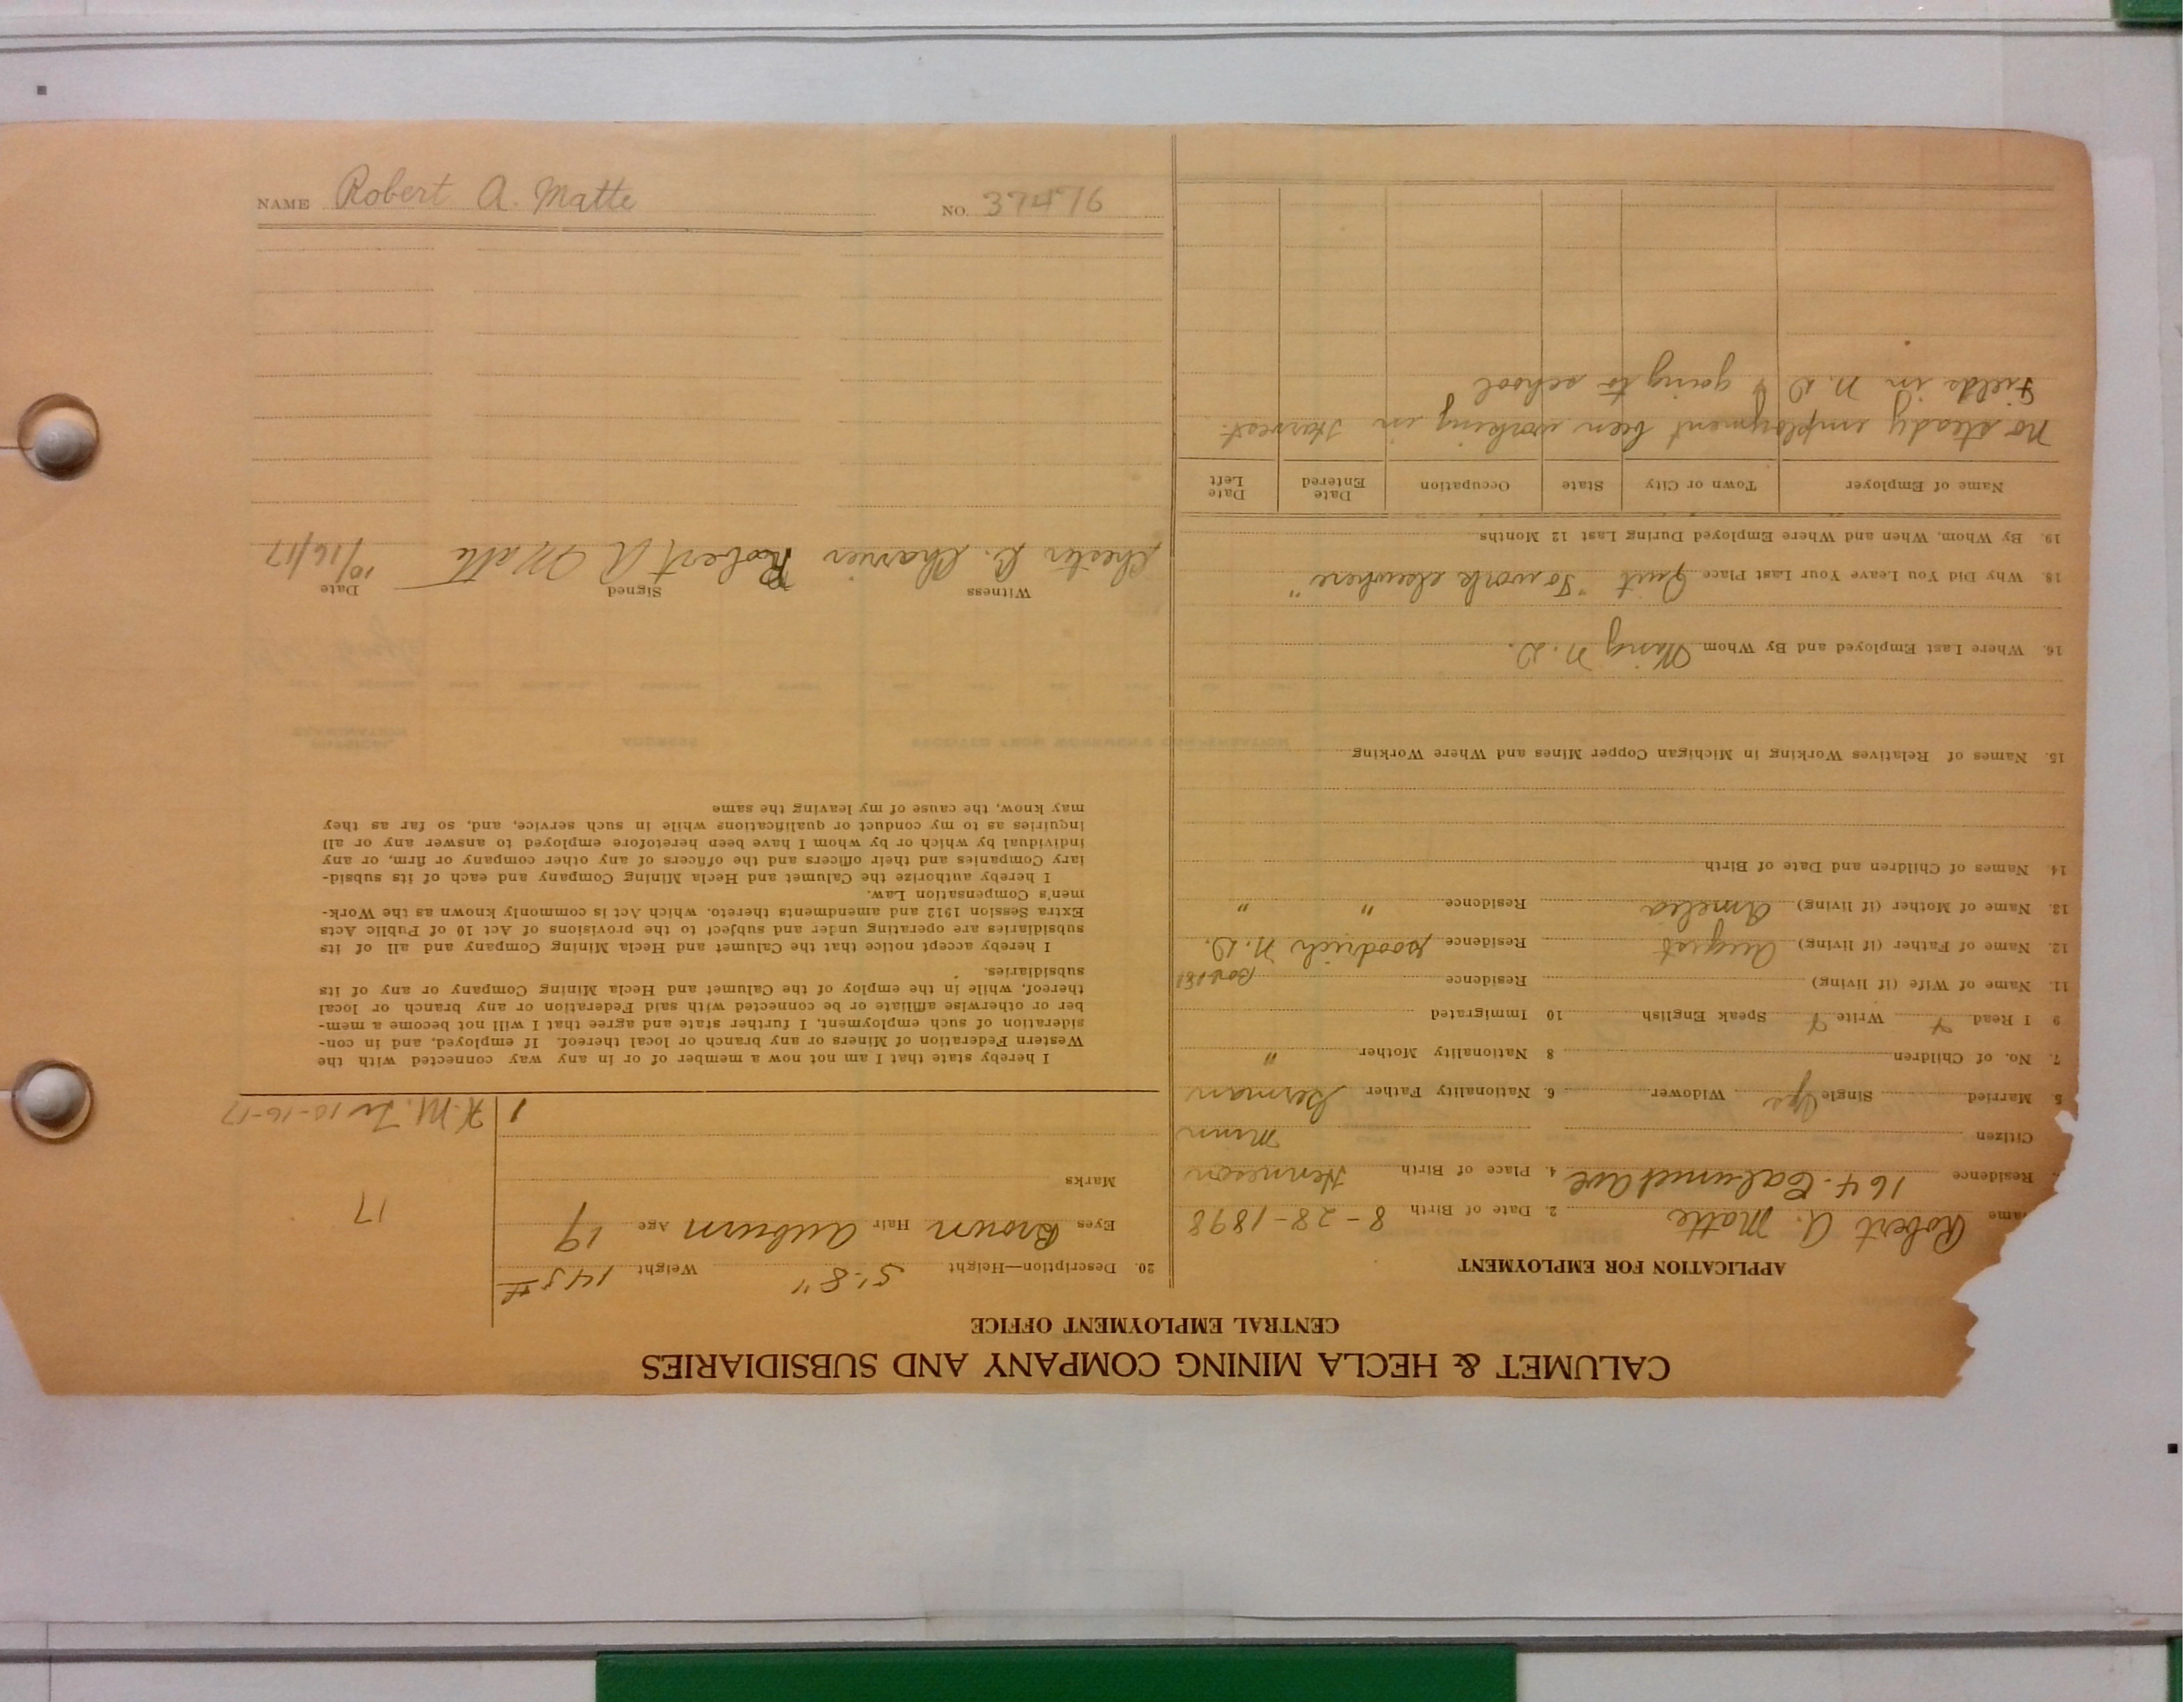 CALUMET & HECLA MINING COMPANY AND SUBSIDIARIES
CENTRAL EMPLOYMENT OFFICE
APPLICATION FOR EMPLOYMENT
ame Robert A. Matte 2. Date of Birth 8-28-1898
Residence 164 Calumet Ave 4. Place of Birth Henneson
Citizen Minn
5 Married Single Yes Widower 6. Nationality Father German
7. No. of Children 8 Nationality Mother "
9 I Read Write Speak English 10 Immigrated
11. Name of Wife (if living) Residence Box 181
12. Name of Father (if living) August Residence Goodrich N. D.
13. Name of Mother (if living) Amelia Residence " "
14. Names of Children and Date of Birth
15. Names of Relatives Working in Michigan Copper Mines and Where Working
16. Where Last Employed and By Whom Wing N. D.
18. Why Did You Leave Your Last Place Quit "To work elsewhere"
19. By Whom, When and Where Employed During Last 12 Months
Name of Employer Town or City State Occupation Date Entered Date Left
No steady employment been working in Harvest
Fields in N. D & going to school
20. Description—Height 5'-8" Weight 145 #
Eyes Brown Hair Auburn Age 19
Marks
17
10-16-17
I hereby state that I am not now a member of or in any way connected with the
Western Federation of Miners or any branch or local thereof. If employed, and in con-
sideration of such employment, I further state and agree that I will not become a mem-
ber or otherwise affiliate or be connected with said Federation or any branch or local
thereof, while in the employ of the Calumet and Hecla Mining Company or any of its
subsidiaries.
I hereby accept notice that the Calumet and Hecla Mining Company and all of its
subsidiaries are operating under and subject to the provisions of Act 10 of Public Acts
Extra Session 1912 and amendments thereto, which Act is commonly known as the Work-
men's Compensation Law.
I hereby authorize the Calumet and Hecla Mining Company and each of its subsid-
iary Companies and their officers and the officers of any other company or firm, or any
individual by which or by whom I have been heretofore employed to answer any or all
inquiries as to my conduct or qualifications while in such service, and, so far as they
may know, the cause of my leaving the same
Witness Signed Date
Chester Robert A Matte 10/16/17
NAME Robert A. Matte NO. 37476